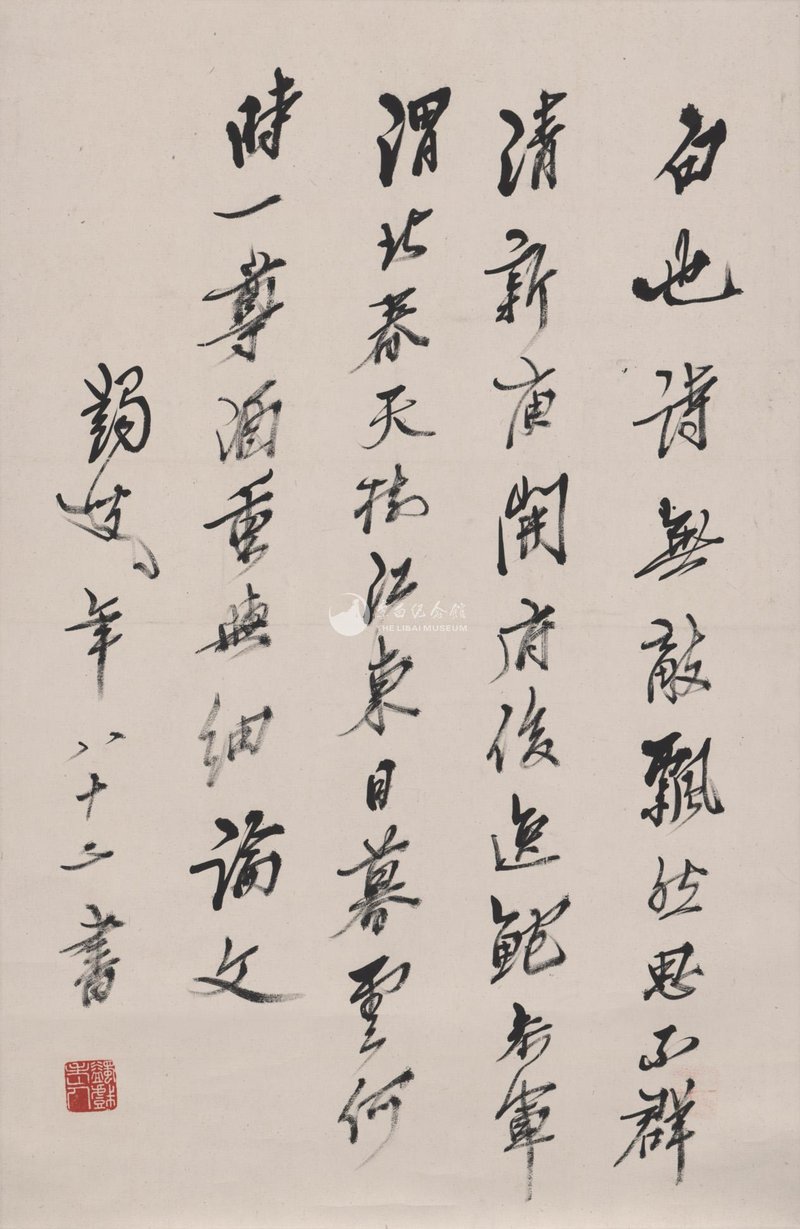 白也詩無敵飄然思不群
清新庾開府俊逸鮑參軍
渭北春天樹江東日暮雲何
時一尊酒重與細論文
蠲叟年八十二書
蠲戲老人
李白纪念馆
THE LIBAI MUSEUM